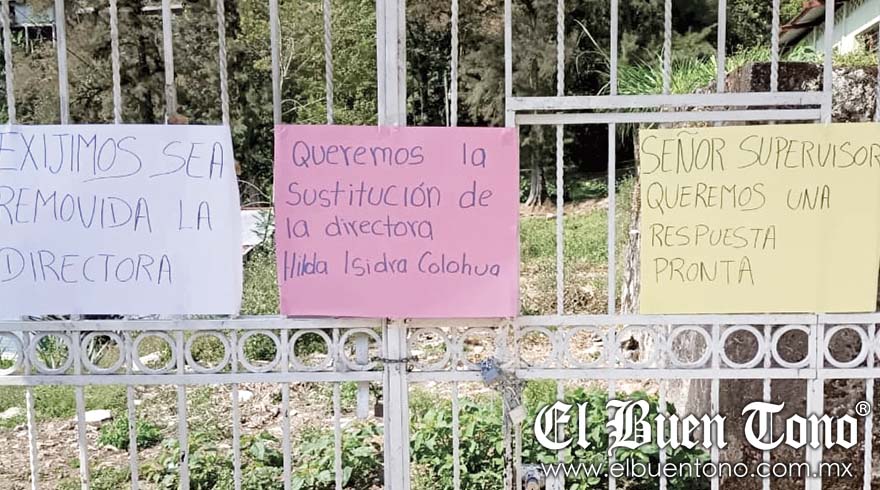 EXIJIMOS SEA
REMOVIDA LA
DIRECTORA
Queremos la
Sustitución de
la directora
Hilda Isidra Colohua
SEÑOR SUPERVISOR
QUEREMOS UNA
RESPUESTA
PRONTA
El Buen Tono®
www.elbuentono.com.mx